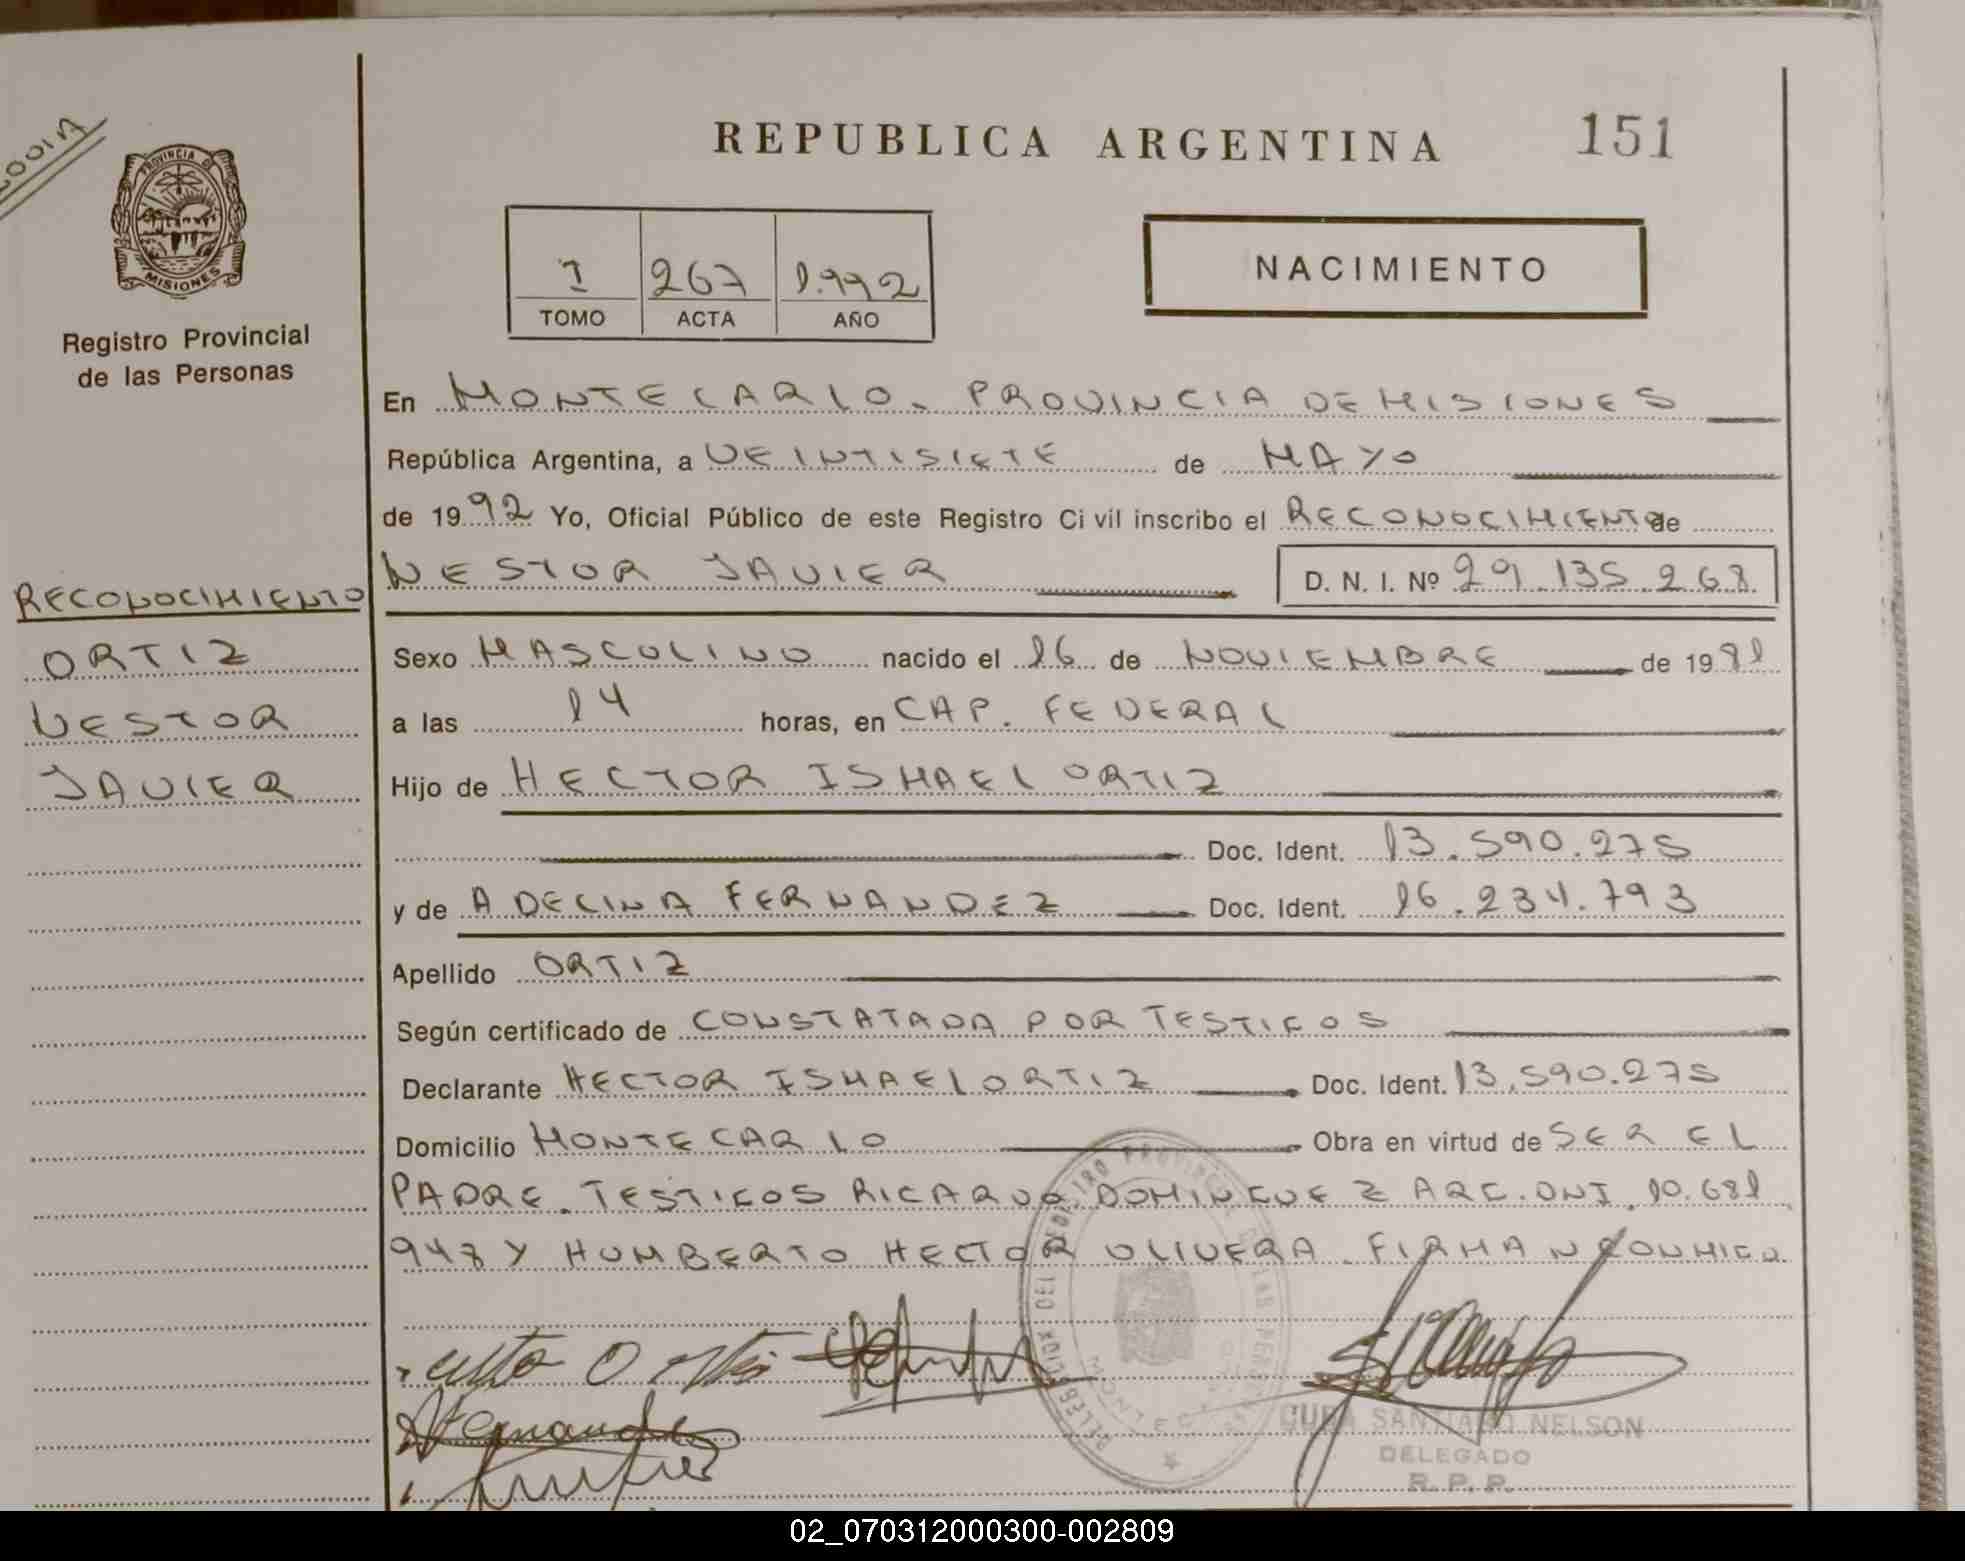 REPUBLICA ARGENTINA
151
PROVINCIA DE
MISIONES
Registro Provincial
de las Personas
I 267 1.992
TOMO ACTA AÑO
NACIMIENTO
En MONTECARLO. PROVINCIA DE MISIONES
República Argentina, a VEINTISIETE de MAYO
de 1992 Yo, Oficial Público de este Registro Ci vil inscribo el RECONOCIMIENTO de
NESTOR JAVIER D. N. I. Nº 29.135.268
RECONOCIMIENTO
ORTIZ
NESTOR
JAVIER
Sexo MASCULINO nacido el 16 de NOVIEMBRE de 1981
a las 14 horas, en CAP. FEDERAL
Hijo de HECTOR ISMAEL ORTIZ
Doc. Ident. 13.590.275
y de ADELINA FERNANDEZ Doc. Ident. 16.234.793
Apellido ORTIZ
Según certificado de CONSTATADA POR TESTIGOS
Declarante HECTOR ISMAEL ORTIZ Doc. Ident. 13.590.275
Domicilio MONTECARLO Obra en virtud de SER EL
PADRE. TESTIGOS RICARDO DOMINGUEZ ARG. DNI. 10.681
948 Y HUMBERTO HECTOR OLIVERA. FIRMAN CONMIGO
CUBA SANTIAGO NELSON
DELEGADO
R. P. P.
02_070312000300-002809